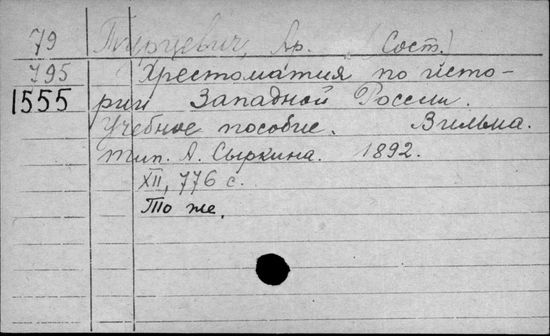 79 Турцевич, Ар. (Сост.)
795 Хрестоматия по исто-
1555 рии Западной России.
Учебное пособие. Вильна.
тип. А. Сыркина. 1892.
XII, 776 с.
То же.